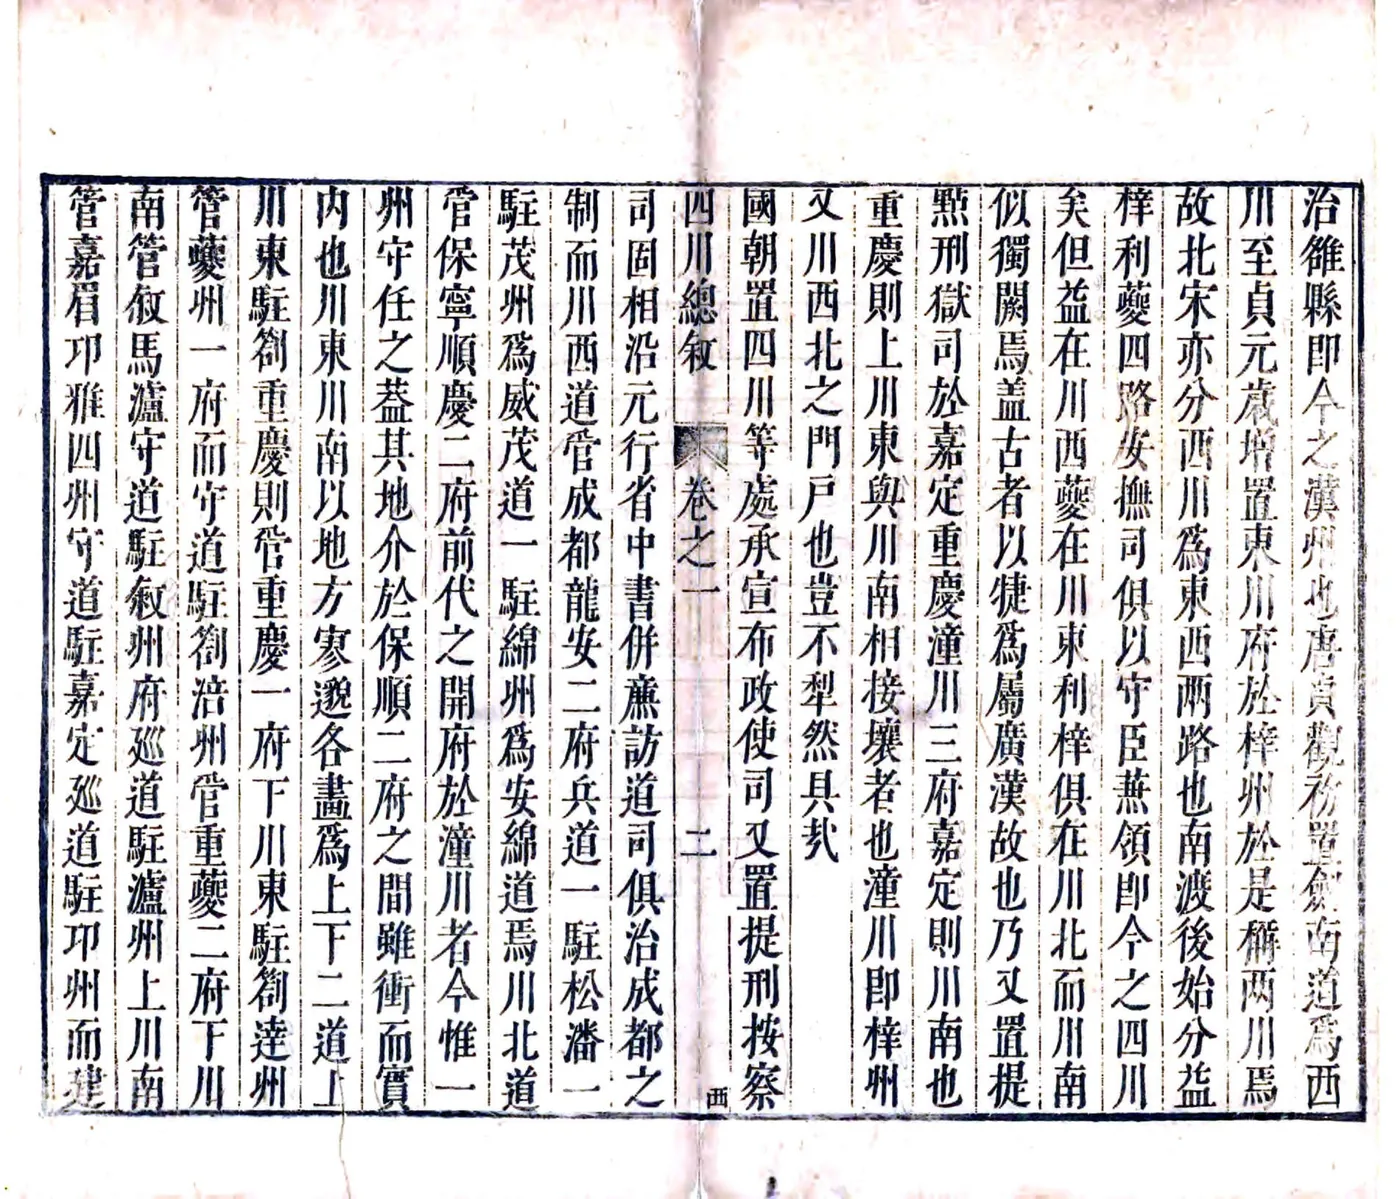 治雒縣即今之漢州也唐貞觀初置劍南道爲西
川至貞元歲增置東川府於梓州於是稱两川焉
故北宋亦分西川爲東西两路也南渡後始分益
梓利夔四路安撫司俱以守臣兼領即今之四川
矣但益在川西夔在川東利梓俱在川北而川南
似獨闕焉盖古者以犍爲屬廣漢故也乃又置提
㸃刑獄司於嘉定重慶潼川三府嘉定則川南也
重慶則上川東與川南相接壤者也潼川即梓州
又川西北之門戶也豈不犁然具㢤
國朝置四川等處承宣布政使司又置提刑按察
四川總敘 卷之一 二 西
司固相沿元行省中書併亷訪道司俱治成都之
制而川西道管成都龍安二府兵道一駐松潘一
駐茂州爲威茂道一駐綿州爲安綿道焉川北道
管保寧順慶二府前代之開府於潼川者今惟一
州守任之葢其地介於保順二府之間雖衝而實
内也川東川南以地方寥邈各畫爲上下二道上
川東駐劄重慶則管重慶一府下川東駐劄達州
管夔州一府而守道駐劄涪州管重夔二府下川
南管敘馬瀘守道駐敘州府廵道駐瀘州上川南
管嘉眉邛雅四州守道駐嘉定廵道駐邛州而建